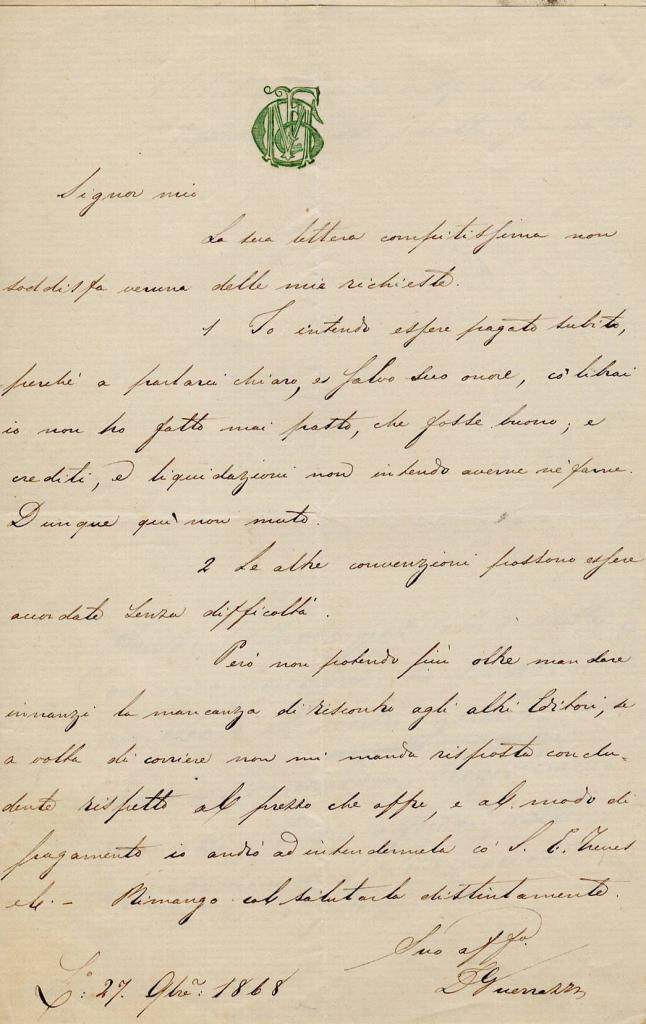 Signor mio
La sua lettera compitissima non
soddisfa veruna delle mie richieste.
1 Io intendo essere pagato subito,
perché a parlarci chiaro, e salvo suo onore, co' librai
io non ho fatto mai patto, che fosse buono; e
crediti, e liquidazioni non intendo averne nè farne.
Dunque quì non muto.
2 Le altre convenzioni possono essere
accordate senza difficoltà.
Però non potendo più oltre mandare
innanzi la mancanza di riscontro agli altri Editori, se
a volta di corriere non mi manda risposta conclu-
dente rispetto al prezzo che offre, e al modo di
pagamento io andrò ad intendermela co' S. E. Treves
 - Rimango col salutarla distintamente.
Suo affo.
L: 27. 9bre: 1868
DGuerrazzi